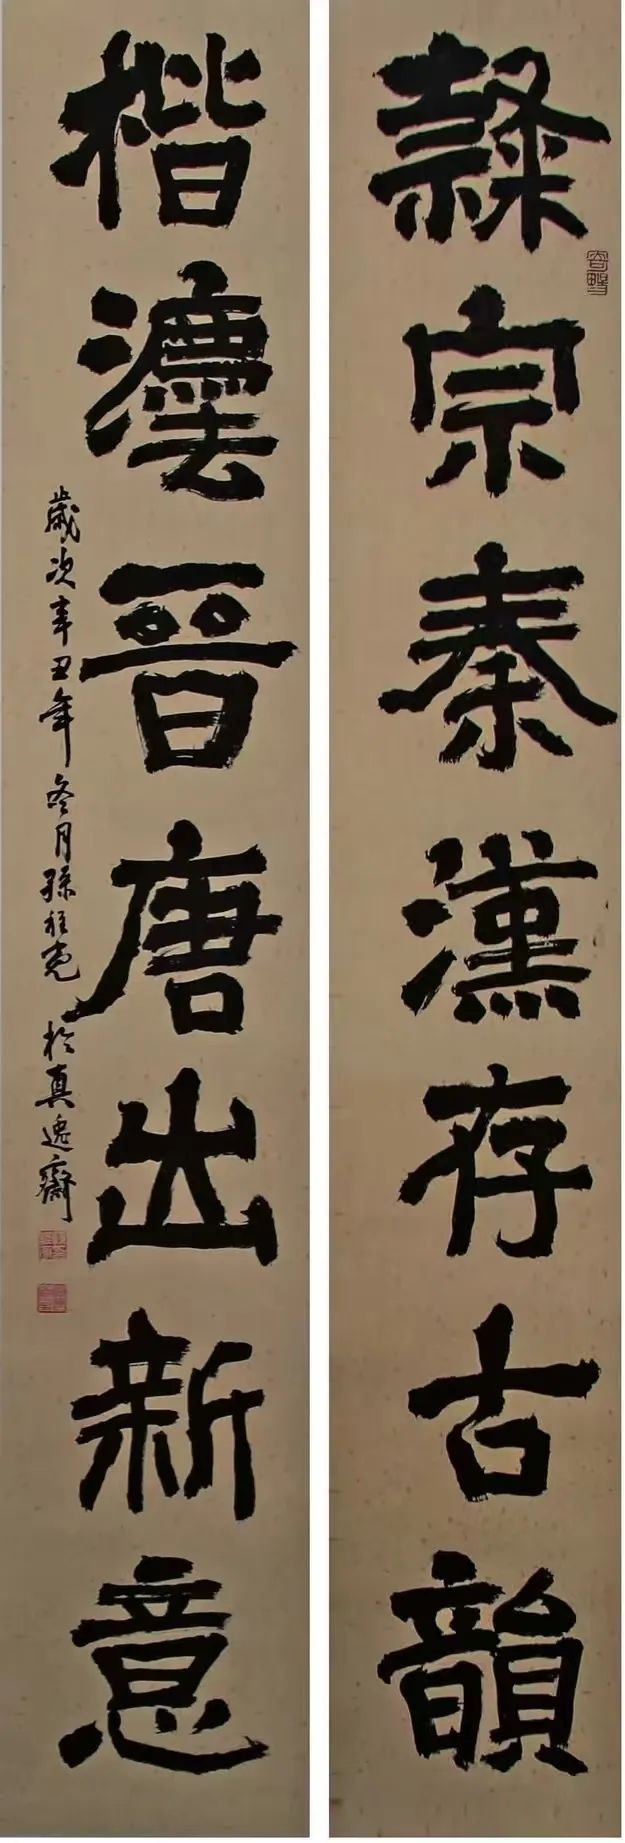 隸宗秦漢存古韻
楷灋晉唐出新意
歲次辛丑年冬月孫
於真逸齋